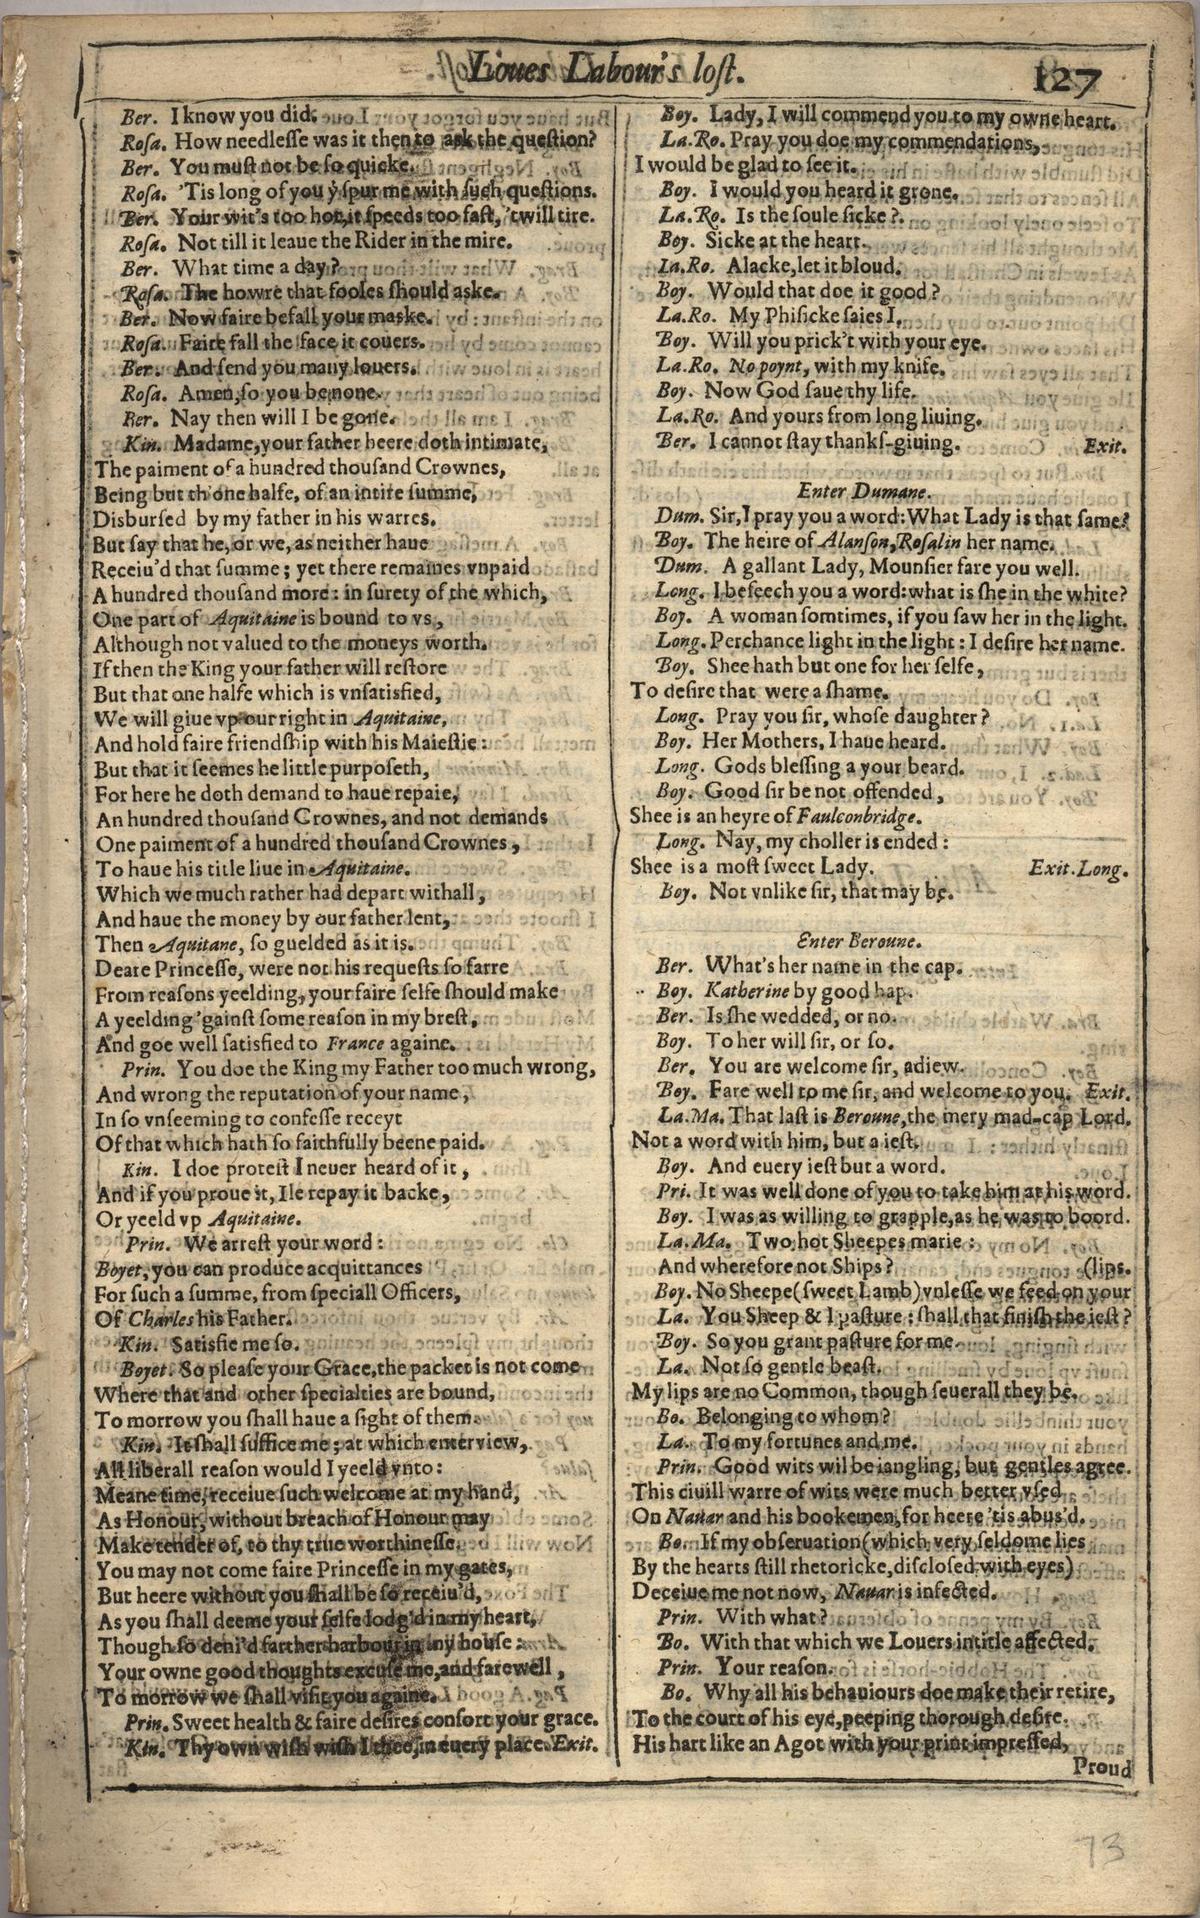 Loues Labour's lost.
127
Ber. I know you did.
Rosa. How needlesse was it then to ask the question?
Ber. You must not be so quicke.
Rosa. 'Tis long of you ẏ spur me with such questions.
Ber. Your wit's too hot, it speeds too fast, 'twill tire.
Rosa. Not till it leaue the Rider in the mire.
Ber. What time a day?
Rosa. The howre that fooles should aske.
Ber. Now faire befall your maske.
Rosa. Faire fall the face it couers.
Ber. And send you many louers.
Rosa. Amen, so you be none.
Ber. Nay then will I be gone.
Kin. Madame, your father heere doth intimate,
The paiment of a hundred thousand Crownes,
Being but th'one halfe, of an intire summe,
Disbursed by my father in his warres.
But say that he, or we, as neither haue
Receiu'd that summe; yet there remaines vnpaid
A hundred thousand more: in surety of the which,
One part of Aquitaine is bound to vs,
Although not valued to the moneys worth.
If then the King your father will restore
But that one halfe which is vnsatisfied,
We will giue vp our right in Aquitaine,
And hold faire friendship with his Maiestie:
But that it seemes he little purposeth,
For here he doth demand to haue repaie,
An hundred thousand Crownes, and not demands
One paiment of a hundred thousand Crownes,
To haue his title liue in Aquitaine.
Which we much rather had depart withall,
And haue the money by our father lent,
Then Aquitane, so guelded as it is.
Deare Princesse, were not his requests so farre
From reasons yeelding, your faire selfe should make
A yeelding 'gainst some reason in my brest,
And goe well satisfied to France againe.
Prin. You doe the King my Father too much wrong,
And wrong the reputation of your name,
In so vnseeming to confesse receyt
Of that which hath so faithfully beene paid.
Kin. I doe protest I neuer heard of it,
And if you proue it, Ile repay it backe,
Or yeeld vp Aquitaine.
Prin. We arrest your word:
Boyet, you can produce acquittances
For such a summe, from speciall Officers,
Of Charles his Father.
Kin. Satisfie me so.
Boyet. So please your Grace, the packet is not come
Where that and other specialties are bound,
To morrow you shall haue a sight of them.
Kin. It shall suffice me; at which enterview,
All liberall reason would I yeeld vnto:
Meane time, receiue such welcome at my hand,
As Honour, without breach of Honour may
Make tender of, to thy true worthinesse.
You may not come faire Princesse in my gates,
But heere without you shall be so receiu'd,
As you shall deeme your selfe lodg'd in my heart,
Though so deni'd farther harbour in my house:
Your owne good thoughts excuse me, and farewell,
To morrow we shall visit you againe.
Prin. Sweet health & faire desires consort your grace.
Kin. Thy own wish wish I thee, in euery place. Exit.
Boy. Lady, I will commend you to my owne heart.
La.Ro. Pray you doe my commendations,
I would be glad to see it.
Boy. I would you heard it grone.
La.Ro. Is the soule sicke?
Boy. Sicke at the heart.
La.Ro. Alacke, let it bloud.
Boy. Would that doe it good?
La.Ro. My Phisicke saies I.
Boy. Will you prick't with your eye.
La.Ro. No poynt, with my knife.
Boy. Now God saue thy life.
La.Ro. And yours from long liuing.
Ber. I cannot stay thanks-giuing. Exit.
Enter Dumane.
Dum. Sir, I pray you a word: What Lady is that same?
Boy. The heire of Alanson, Rosalin her name.
Dum. A gallant Lady, Mounsier fare you well.
Long. I beseech you a word: what is she in the white?
Boy. A woman somtimes, if you saw her in the light.
Long. Perchance light in the light: I desire her name.
Boy. Shee hath but one for her selfe,
To desire that were a shame.
Long. Pray you sir, whose daughter?
Boy. Her Mothers, I haue heard.
Long. Gods blessing a your beard.
Boy. Good sir be not offended,
Shee is an heyre of Faulconbridge.
Long. Nay, my choller is ended:
Shee is a most sweet Lady. Exit. Long.
Boy. Not vnlike sir, that may be.
Enter Beroune.
Ber. What's her name in the cap.
Boy. Katherine by good hap.
Ber. Is she wedded, or no.
Boy. To her will sir, or so.
Ber. You are welcome sir, adiew.
Boy. Fare well to me sir, and welcome to you. Exit.
La.Ma. That last is Beroune, the mery mad-cap Lord.
Not a word with him, but a iest.
Boy. And euery iest but a word.
Pri. It was well done of you to take him at his word.
Boy. I was as willing to grapple, as he was to boord.
La.Ma. Two hot Sheepes marie:
And wherefore not Ships? (lips.
Boy. No Sheepe (sweet Lamb) vnlesse we feed on your
La. You Sheep & I pasture: shall that finish the iest?
Boy. So you grant pasture for me.
La. Not so gentle beast.
My lips are no Common, though seuerall they be.
Bo. Belonging to whom?
La. To my fortunes and me.
Prin. Good wits wil be iangling, but gentles agree.
This ciuill warre of wits were much better vsed
On Nauar and his bookemen, for heere 'tis abus'd.
Bo. If my obseruation (which very seldome lies
By the hearts still rhetoricke, disclosed with eyes)
Deceiue me not now, Nauar is infected.
Prin. With what?
Bo. With that which we Louers intitle affected.
Prin. Your reason.
Bo. Why all his behauiours doe make their retire,
To the court of his eye, peeping thorough desire.
His hart like an Agot with your print impressed,
Proud
73